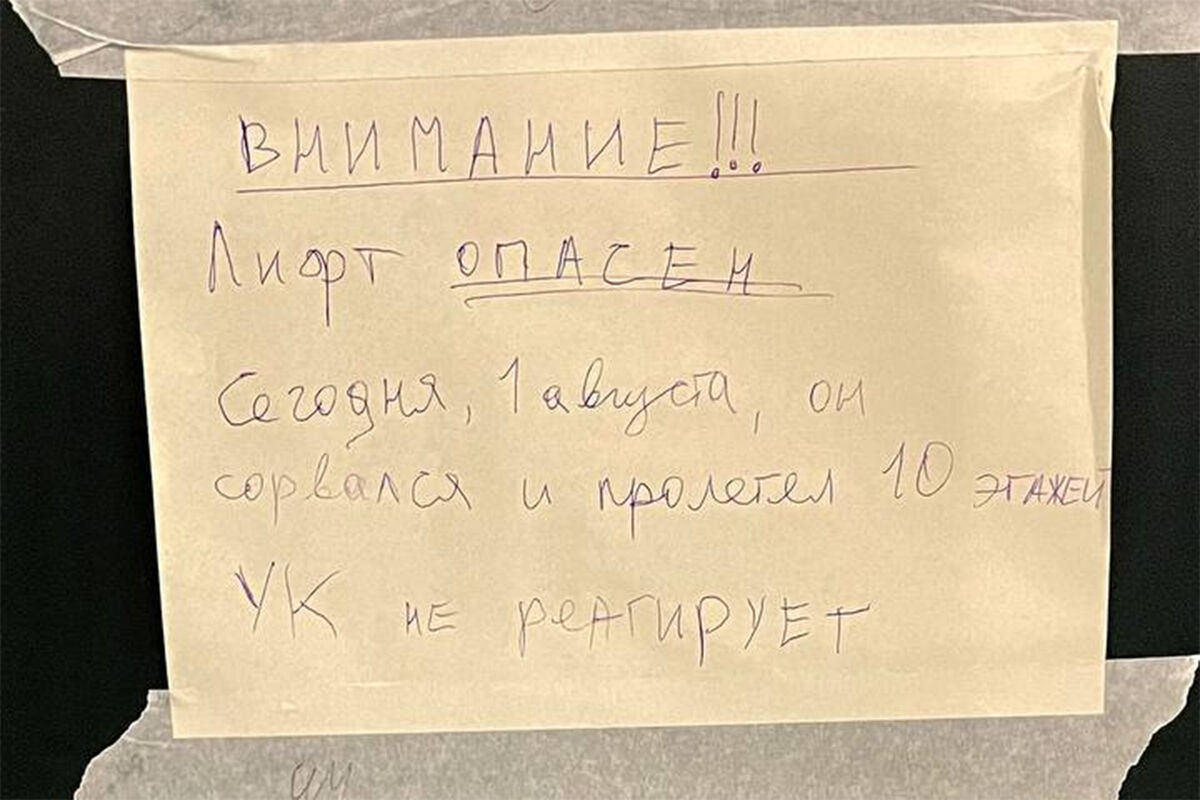 ВНИМАНИЕ!!!
Лифт ОПАСЕН
Сегодня, 1 августа, он
сорвался и пролетел 10 этажей
УК не реагирует